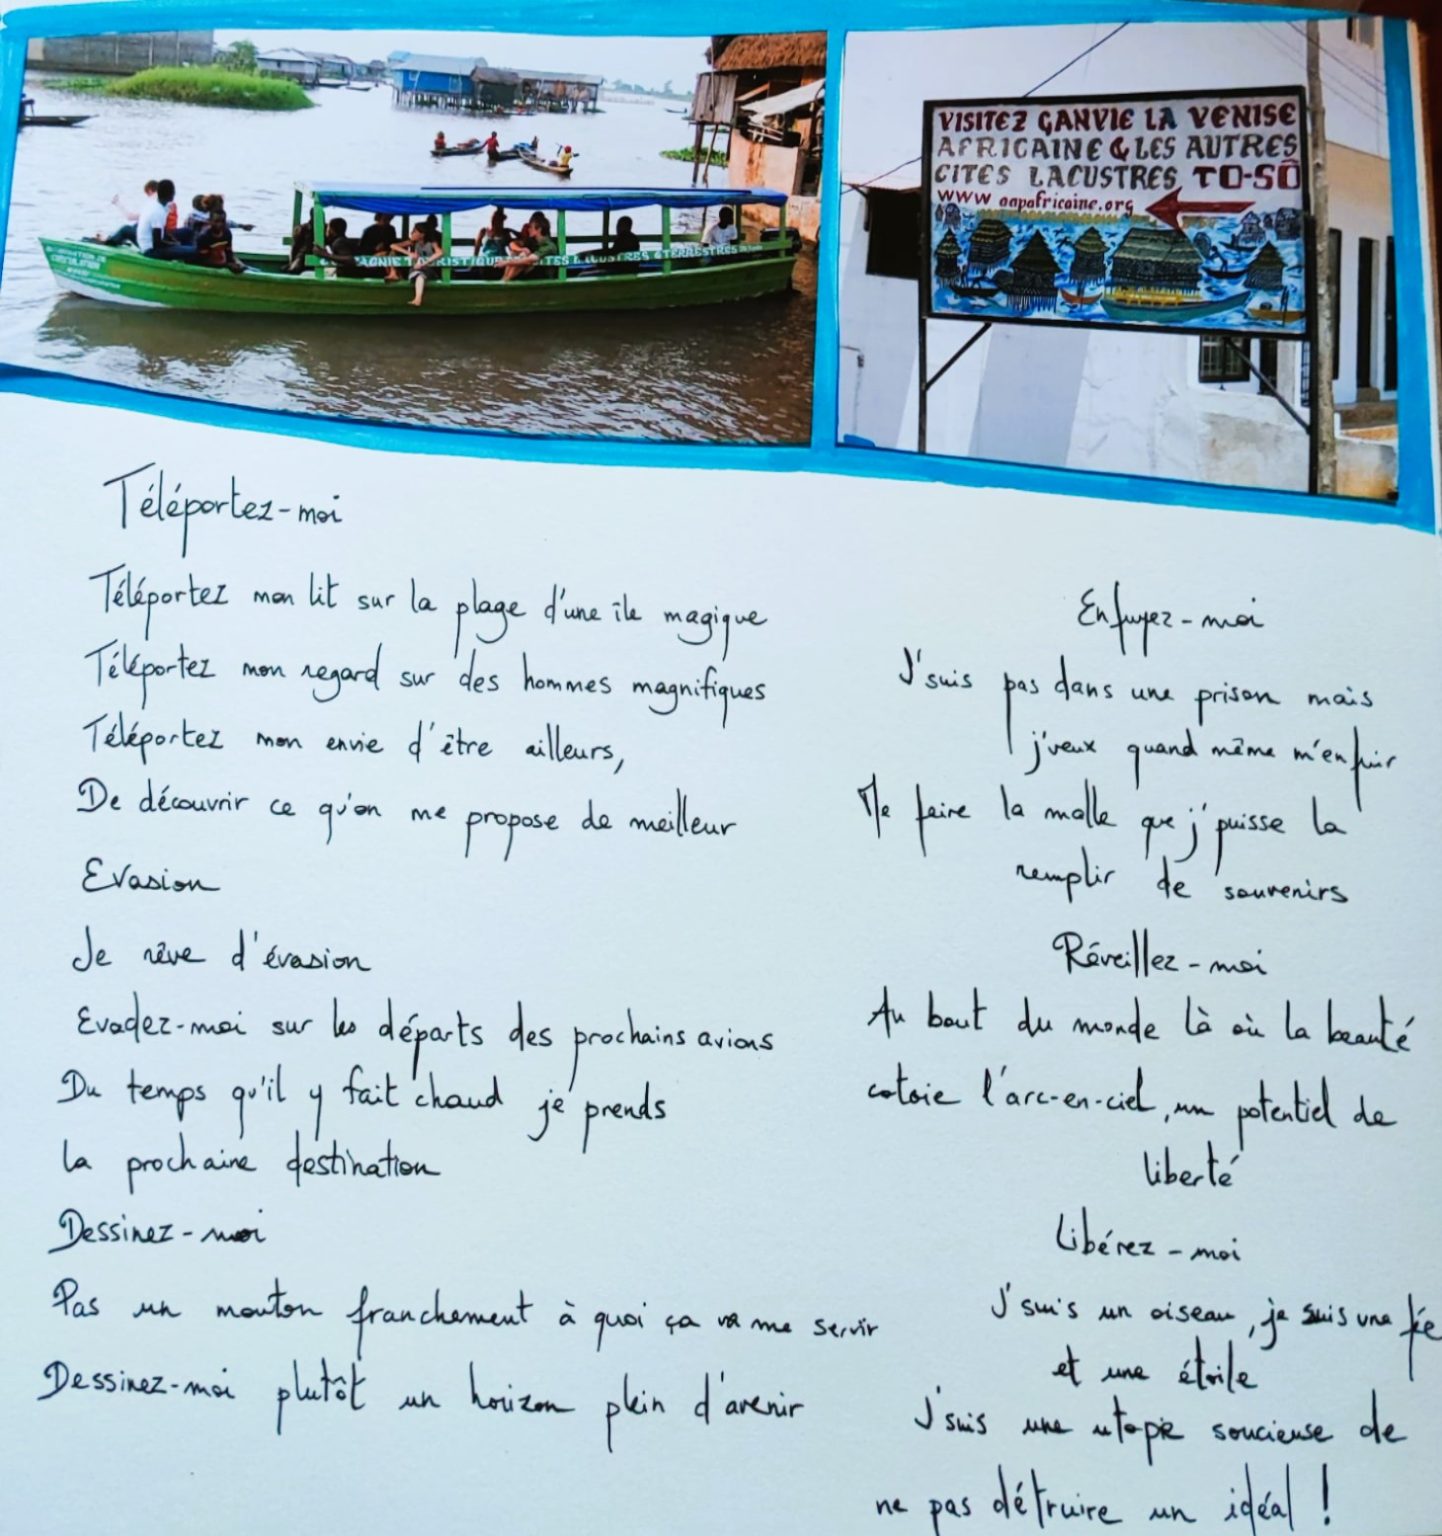 VISITEZ GANVIE LA VENISE
AFRICAINE & LES AUTRES
CITES LACUSTRES TO-SÔ
www oapafricaine.org
TOURISTIQUE
LACUSTRES & TERRESTRES
Téléportez-moi
Téléportez mon lit sur la plage d'une île magique
Téléportez mon regard sur des hommes magnifiques
Téléportez mon envie d'être ailleurs,
De découvrir ce qu'on me propose de meilleur
Evasion
Je rêve d'évasion
Evadez-moi sur les départs des prochains avions
Du temps qu'il y fait chaud je prends
la prochaine destination
Dessinez-moi
Pas un mouton franchement à quoi ça va me servir
Dessinez-moi plutôt un horizon plein d'avenir
Enfuyez-moi
J'suis pas dans une prison mais
j'veux quand même m'enfuir
Me faire la malle que j'puisse la
remplir de souvenirs
Réveillez-moi
Au bout du monde là où la beauté
cotoie l'arc-en-ciel, un potentiel de
liberté
Libérez-moi
J'suis un oiseau, je suis une fée
et une étoile
J'suis une utopie soucieuse de
ne pas détruire un idéal !